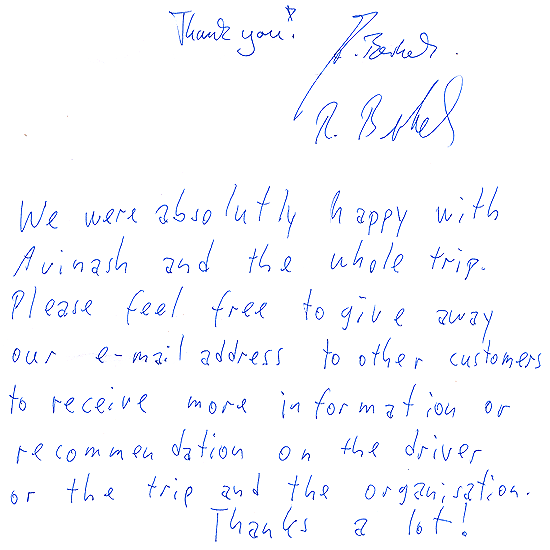 Thank you!
We were absolutly happy with
Avinash and the whole trip.
Please feel free to give away
our e-mail address to other customers
to receive more information or
recommendation on the driver
or the trip and the organisation.
Thanks a lot!